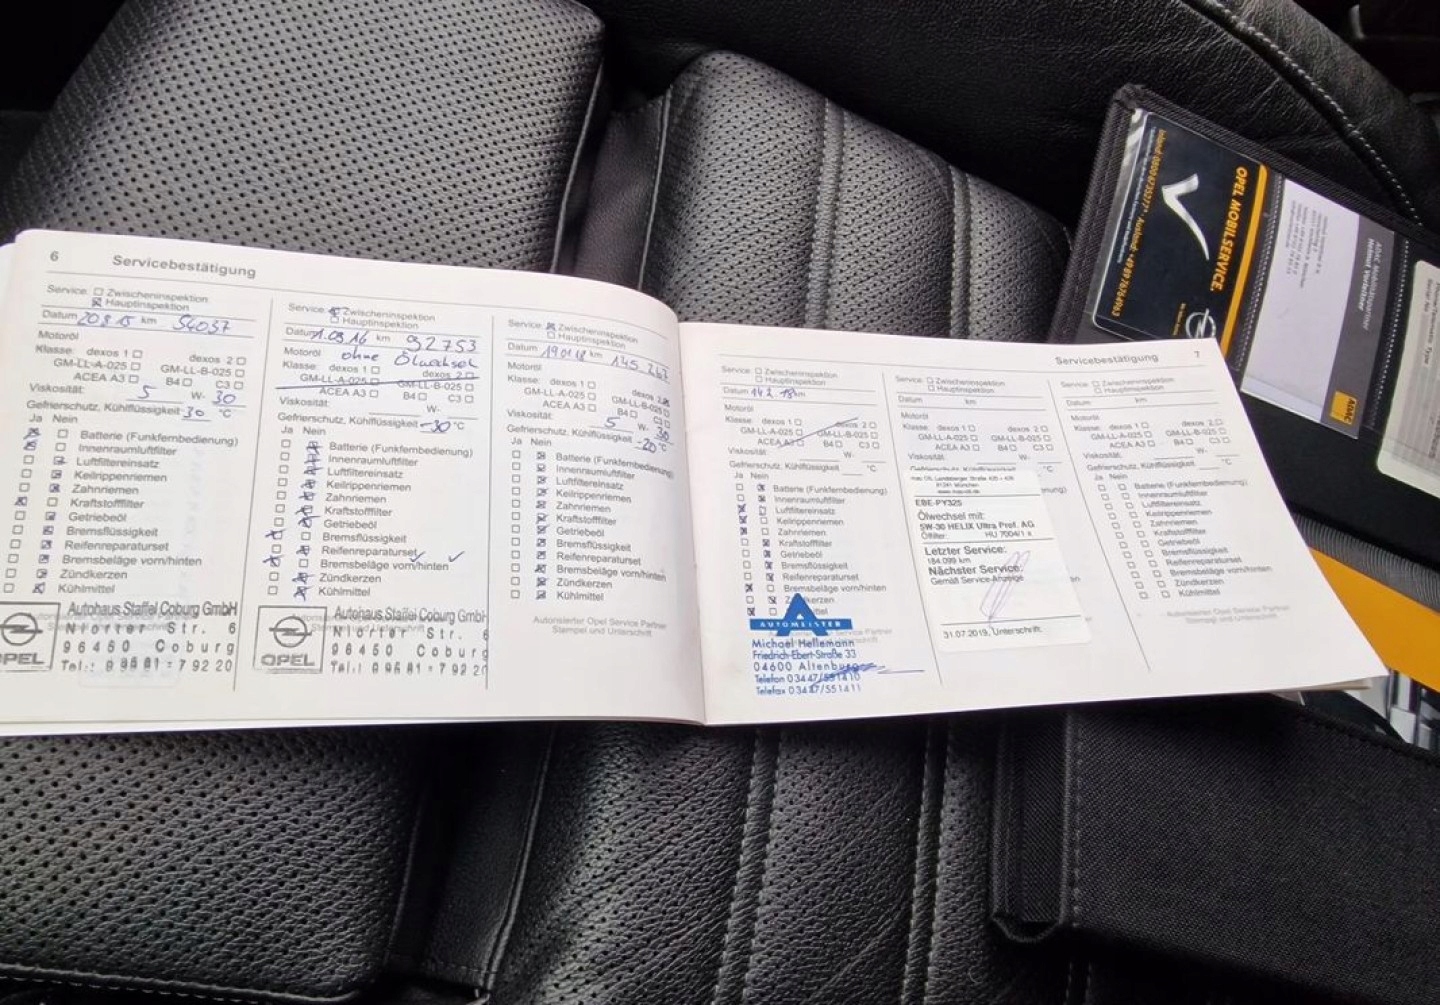 6 Servicebestätigung
Service: Zwischeninspektion
Hauptinspektion
Datum 20 8 15 km 54037
Motoröl
Klasse: dexos 1 dexos 2
GM-LL-A-025 GM-LL-B-025
ACEA A3 B4 C3
Viskosität: 5 W- 30
Gefrierschutz, Kühlflüssigkeit -30 °C
Ja Nein
Batterie (Funkfernbedienung)
Innenraumluftfilter
Luftfiltereinsatz
Keilrippenriemen
Zahnriemen
Kraftstofffilter
Getriebeöl
Bremsflüssigkeit
Reifenreparaturset
Bremsbeläge vorn/hinten
Zündkerzen
Kühlmittel
Autohaus Staffel Coburg GmbH
Niorter Str. 6
96450 Coburg
OPEL
Tel.: 09561-79220
Service: Zwischeninspektion
Hauptinspektion
Datum 1.09.16 km 92753
Motoröl ohne Ölwechsel
Klasse: dexos 1 dexos 2
GM-LL-A-025 GM-LL-B-025
ACEA A3 B4 C3
Viskosität: W-
Gefrierschutz, Kühlflüssigkeit -30 °C
Ja Nein
Batterie (Funkfernbedienung)
Innenraumluftfilter
Luftfiltereinsatz
Keilrippenriemen
Zahnriemen
Kraftstofffilter
Getriebeöl
Bremsflüssigkeit
Reifenreparaturset
Bremsbeläge vorn/hinten
Zündkerzen
Kühlmittel
Autohaus Staffel Coburg GmbH
Niorter Str. 6
96450 Coburg
OPEL
Tel.: 09561-79220
Service: Zwischeninspektion
Hauptinspektion
Datum 19 01 18 km 145 247
Motoröl
Klasse: dexos 1 dexos 2
GM-LL-A-025 GM-LL-B-025
ACEA A3 B4 C3
Viskosität: 5 W- 30
Gefrierschutz, Kühlflüssigkeit -20 °C
Ja Nein
Batterie (Funkfernbedienung)
Innenraumluftfilter
Luftfiltereinsatz
Keilrippenriemen
Zahnriemen
Kraftstofffilter
Getriebeöl
Bremsflüssigkeit
Reifenreparaturset
Bremsbeläge vorn/hinten
Zündkerzen
Kühlmittel
Autorisierter Opel Service Partner
Stempel und Unterschrift
Servicebestätigung 7
Service: Zwischeninspektion
Hauptinspektion
Datum 14 2. 18 km
Motoröl
Klasse: dexos 1 dexos 2
GM-LL-A-025 GM-LL-B-025
ACEA A3 B4 C3
Viskosität: W-
Gefrierschutz, Kühlflüssigkeit °C
Ja Nein
Batterie (Funkfernbedienung)
Innenraumluftfilter
Luftfiltereinsatz
Keilrippenriemen
Zahnriemen
Kraftstofffilter
Getriebeöl
Bremsflüssigkeit
Reifenreparaturset
Bremsbeläge vorn/hinten
AUTOMEISTER
Michael Hellemann
Friedrich-Ebert-Straße 33
04600 Altenburg
Telefon 03447/551410
Telefax 03447/551411
Service: Zwischeninspektion
Hauptinspektion
Datum km
Motoröl
Klasse: dexos 1 dexos 2
GM-LL-A-025 GM-LL-B-025
ACEA A3 B4 C3
Viskosität: W-
Gefrierschutz, Kühlflüssigkeit °C
Landsberger Straße
München
EBE-PY325
Ölwechsel mit:
5W-30 HELIX Ultra Prof. AG
Ölfilter: HU 7004/1 x
Letzter Service:
184.099 km
Nächster Service:
Gemäß Service-Anzeige
31.07.2019, Unterschrift:
Service: Zwischeninspektion
Hauptinspektion
Datum km
Motoröl
Klasse: dexos 1 dexos 2
GM-LL-A-025 GM-LL-B-025
ACEA A3 B4 C3
Viskosität: W-
Gefrierschutz, Kühlflüssigkeit °C
Ja Nein
Batterie (Funkfernbedienung)
Innenraumluftfilter
Luftfiltereinsatz
Keilrippenriemen
Zahnriemen
Kraftstofffilter
Getriebeöl
Bremsflüssigkeit
Reifenreparaturset
Bremsbeläge vorn/hinten
Zündkerzen
Kühlmittel
Autorisierter Opel Service Partner
Stempel und Unterschrift
OPEL MOBILSERVICE.
ADAC